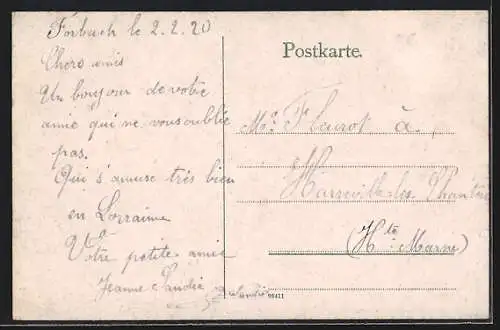 Forbach le 2.2.20
Chers amis
Un bonjour de votre
amie qui ne vous oublie
pas.
Qui s'amuse très bien
en Lorraine
Votre petite amie
Jeanne
Postkarte.
Mr Fleurot à
les Chantre
(Hte Marne)